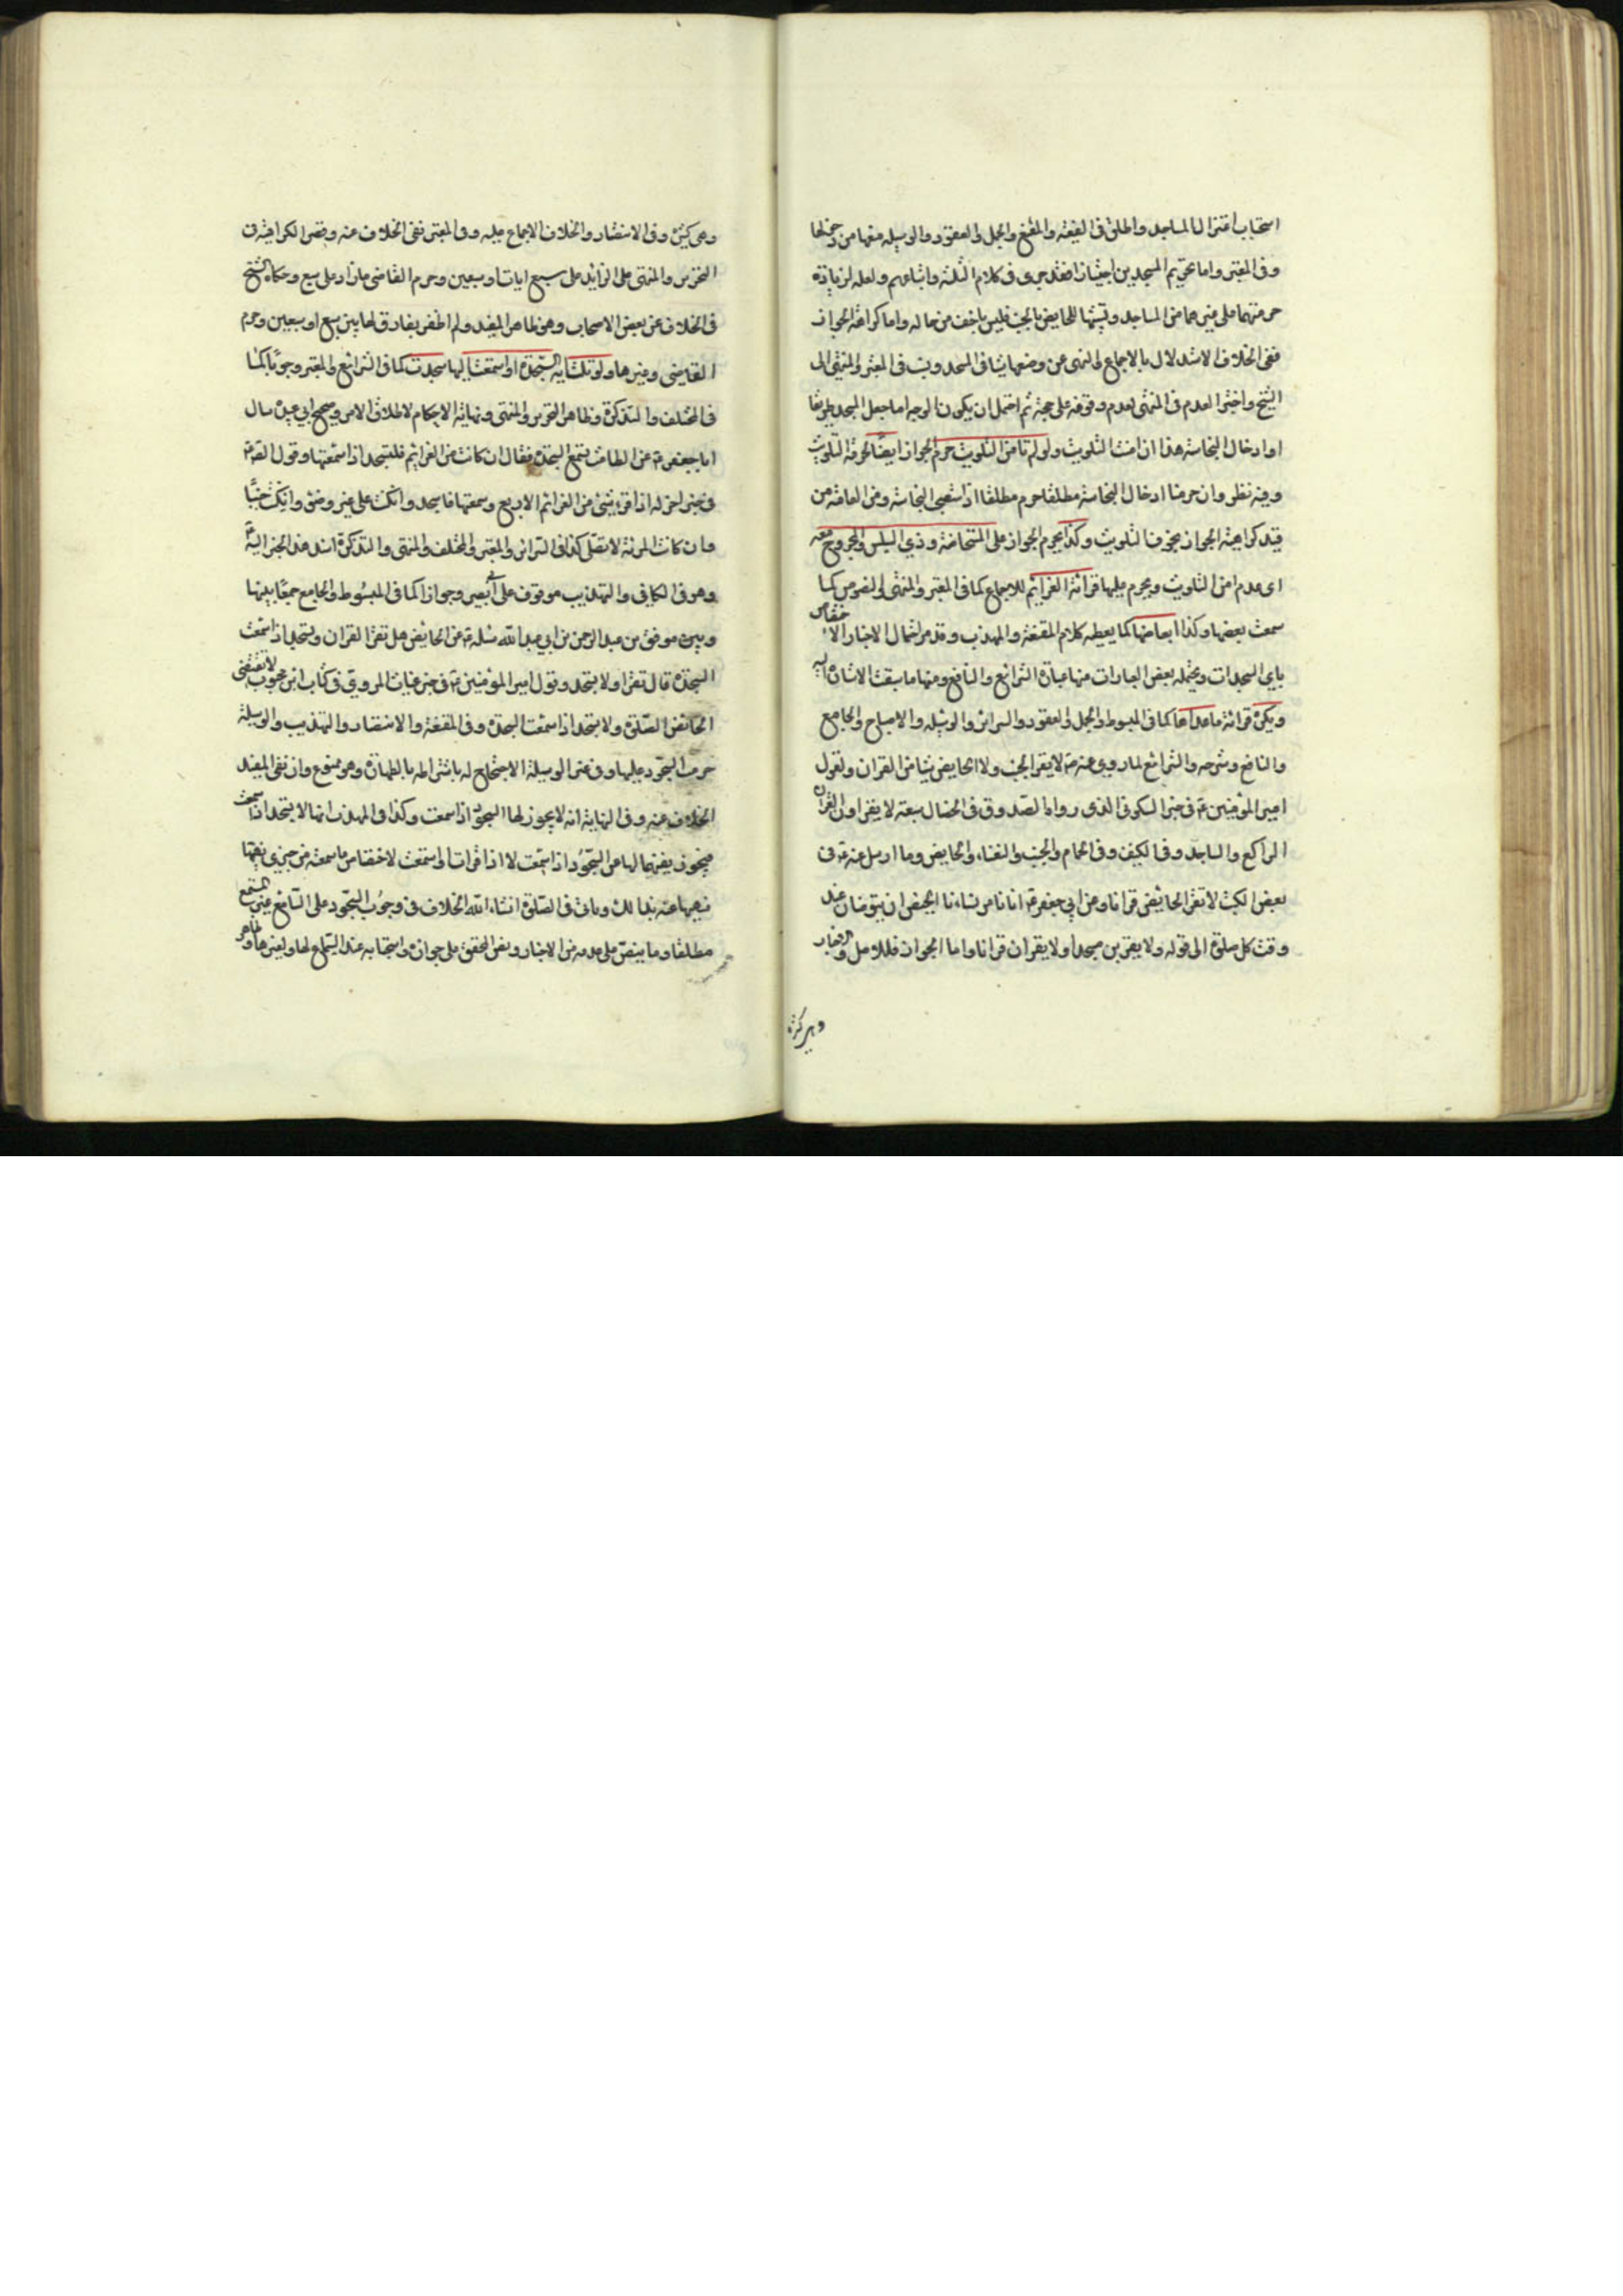 استحباب اعتزال المساجد واطلق في الفقيه والمقنع والجمل والعقود والوسيلة منعها من دخولها
وفي المعتبر واما تحريم المسجدين اجتيازا فقد جرى في كلام الثلثة واتباعهم ولعله لزيادة
حرمتهما على غيرهما من المساجد وتشبيها للحايض بالجنب فليس باخف من حاله واما كراهة الجواز
ففي الخلاف الاستدلال بالاجماع والنهي عن وضعها شيئا في المسجد ونسب في المعتبر والمنتهى الى
الشيخ واخيرا لعدم في المنتهى لعدم وقوفه على حجته ثم احتمل ان يكون الوجه اما جعل المسجد طريقا
او ادخال النجاسة هذا ان امنت التلويث ولو لم تامن التلويث حرم الجواز ايضا لحرمة التلويث
وفيه نظر وان حرمنا ادخال النجاسة مطلقا حرم مطلقا اذا استصحب النجاسة ومن العامة من
قيد كراهية الجواز بخوف التلويث وكذا يحرم الجواز على المستحاضة وذي السلس والمجروح معه
اي عدم امن التلويث ويحرم عليها قرائة العزايم للاجماع كما في المعتبر والمنتهى والنصوص كما
سمعت بعضها وكذا ابعاضها كما يعطيه كلام المقنعة والمهذب وقد مر احتمال الاخبار الاختصاص
باي السجدات ويحتمله بعض العبارات منها عبارة الشرائع والنافع ومنها ما سبقت الاشارة اليه
ويكره قرائة ما عداها كما في المبسوط والجمل والعقود والسرائر والوسيلة والاصباح والجامع
والنافع وشرحه والشرائع لما روي عنه ع لا يقرا الجنب ولا الحايض شيئا من القران ولقول
امير المؤمنين ع في خبر السكوني الذي رواه الصدوق في الخصال سبعة لا يقراون القران
الراكع والساجد وفي الكنيف وفي الحمام والجنب والنفساء والحايض وما ارسل عنه ع في
بعض الكتب لا تقرا الحايض قرانا وعن ابي جعفر ع انا نامر نساءنا الحيض ان يتوضان عند
وقت كل صلوة الى قوله ولا يقربن مسجدا ولا يقران قرانا واما الجواز فللاصل والاخبار
وهي كثيرة
وهي كثيرة وفي الانتصار والخلاف الاجماع عليه وفي المعتبر نفي الخلاف عنه وقصر الكراهية في
التحرير والمنتهى على الزايد على سبع ايات او سبعين وحرم القاضي ما زاد على سبع وحكاه الشيخ
في الخلاف عن بعض الاصحاب وهو ظاهر المفيد ولم اظفر بفارق لها بين سبع او سبعين وحرم
القاضي وغيرها ولو تلت اية السجدة او استمعت اليها سجدت كما في الشرائع والمعتبر وجوبا كما
في المختلف والتذكرة وظاهر التحرير والمنتهى ونهاية الاحكام لاطلاق الامر وصحيح ابي عبيدة سال
ابا جعفر ع عن الطامث تسمع السجدة فقال ان كانت من العزائم فلتسجد اذا سمعتها وقول الصادق ع
في خبر اخر له اذا قرء شيء من العزائم الاربع وسمعتها فاسجد وان كنت على غير وضوء وان كنت جنبا
وان كانت المرئة لا تصلي كذا في السرائر والمعتبر والمختلف والمنتهى والتذكرة اسند هذا الخبر اليه ع
وهو في الكافي والتهذيب موقوف على ابي بصير وجوازا كما في المبسوط والجامع جمعا بينها
وبين موفق بن عبد الرحمن بن ابي عبد الله سئله ع عن الحايض هل تقرا القران وتسجد اذا سمعت
السجدة قال تقرا ولا تسجد وقول امير المؤمنين ع في خبر غياث المروي في كتاب ابن محبوب لا تقضي
الحائض الصلوة ولا تسجد اذا سمعت السجدة وفي المقنعة والانتصار والتهذيب والوسيلة
حرمت السجود عليها وفي غير الوسيلة الاحتجاج له باشتراطه بالطهارة وهو ممنوع وان نفى المفيد
الخلاف عنه وفي النهاية انه لا يجوز لها السجود اذا سمعت وكذا في المهذب انها لا تسجد اذا سمعت
فيجوز بعضها لها من السجود اذا سمعت لا اذا قرات او استمعت لاختصاص ما سمعته من خبري نهيها
نهيها عنه بذلك وياتي في الصلوة انشاء الله الخلاف في وجوب السجود على السامع غير المستمع
مطلقا وما ينص على عدمه من الاخبار ونص المحقق على جوازه واستحبابه عند السماع لها ولغيرها وظاهر